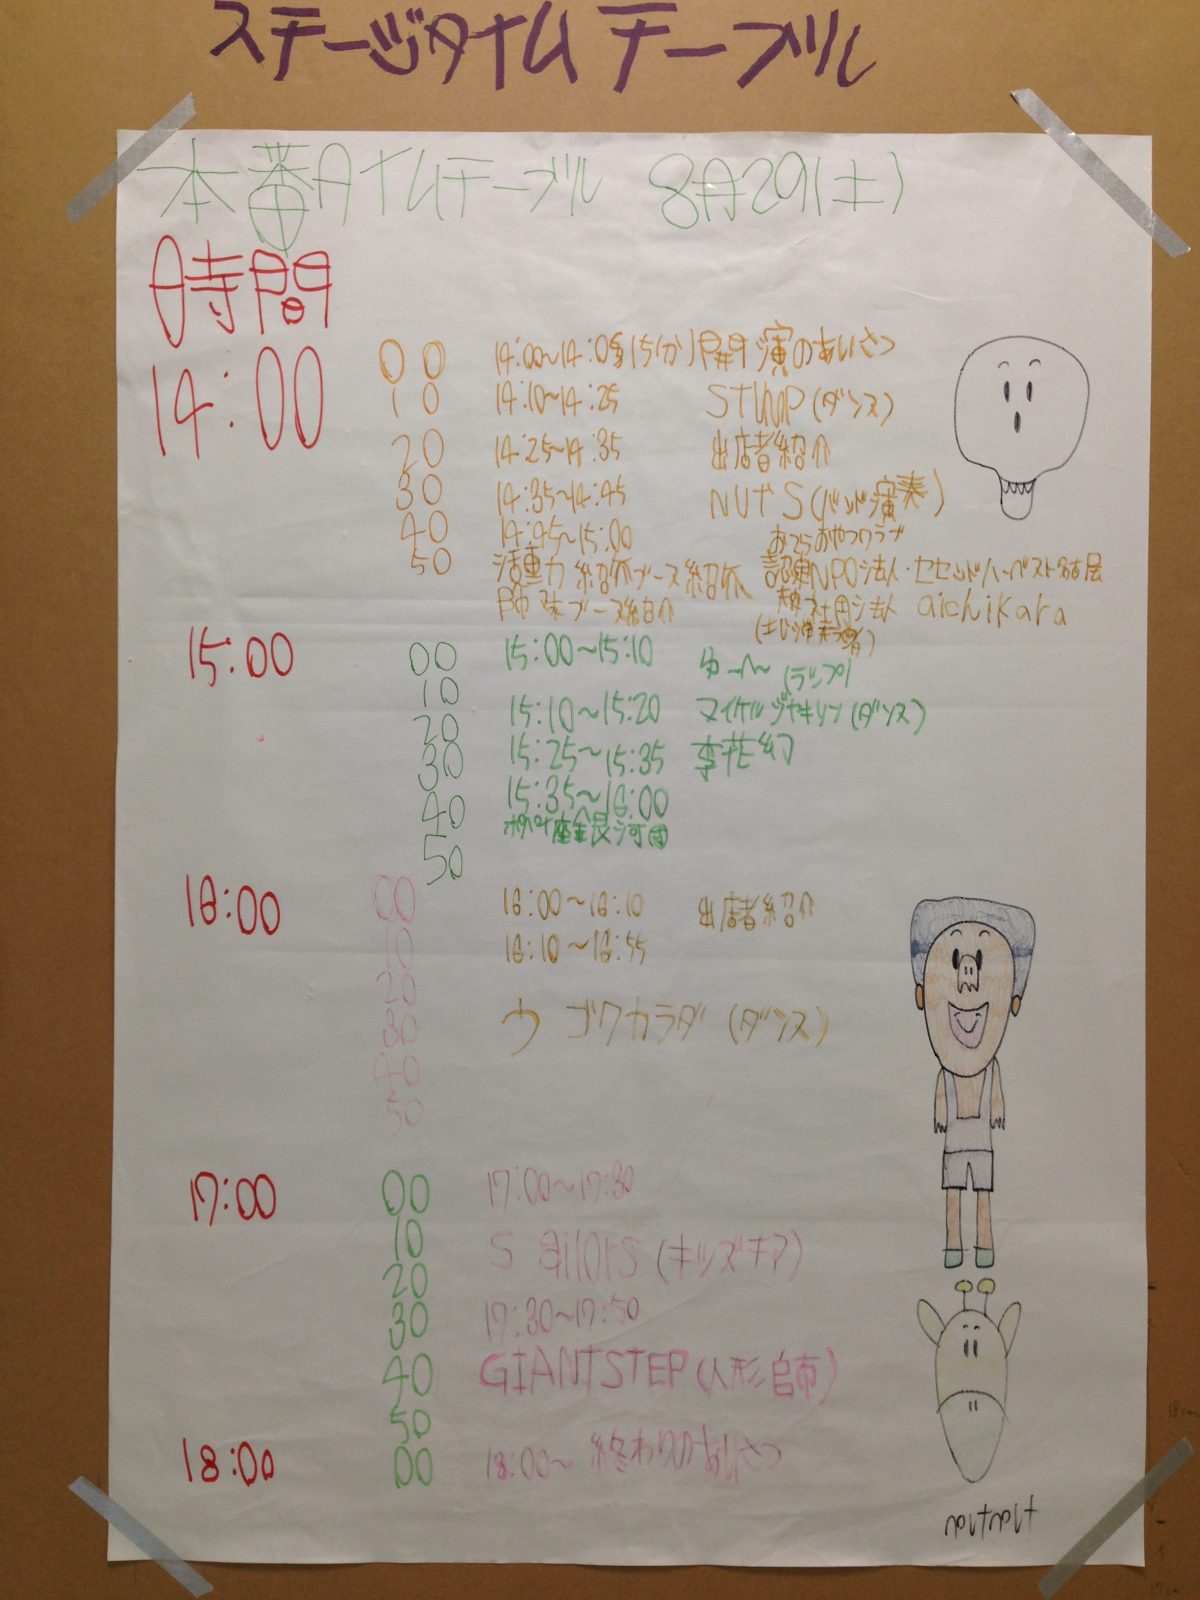 ステージタイムテーブル
本番タイムテーブル 8月29(土)
時間
14:00
00 14:00~14:05 開演のあいさつ
10 14:10~14:25 STUMP(ダンス)
20 14:25~14:35 出店者紹介
30 14:35~14:45 NUTS(バンド演奏)
40 14:45~15:00 おてらおやつクラブ
50 活動紹介ブース紹介 認定NPO法人・セカンドハーベスト名古屋
ブース紹介 社団法人 aichikara
15:00
00 15:00~15:10 (ラップ)
10
15:10~15:20 マイケルジャキソン(ダンス)
20
30 15:25~15:35 李花幻
40 15:35~16:00
50
16:00
00 16:00~16:10 出店者紹介
10 16:10~16:55
20
30 ウゴクカラダ(ダンス)
40
50
17:00
00 17:00~17:30
10 Sailors(キッズチア)
20
30 17:30~17:50
40 GIANTSTEP(人形師)
50
18:00 00 18:00~ 終わりのあいさつ